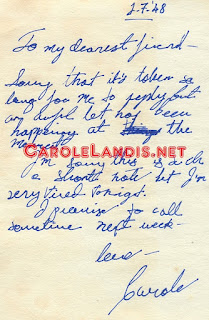 2-7-'48
To my dearest friend —
Sorry that it's taken so
long for me to reply but
an awful lot has been
happening at the
moment.
CAROLELANDIS.NET
I'm sorry this is such
a short note but I'm
very tired tonight.
I promise to call
sometime next week —
Love —
Carole